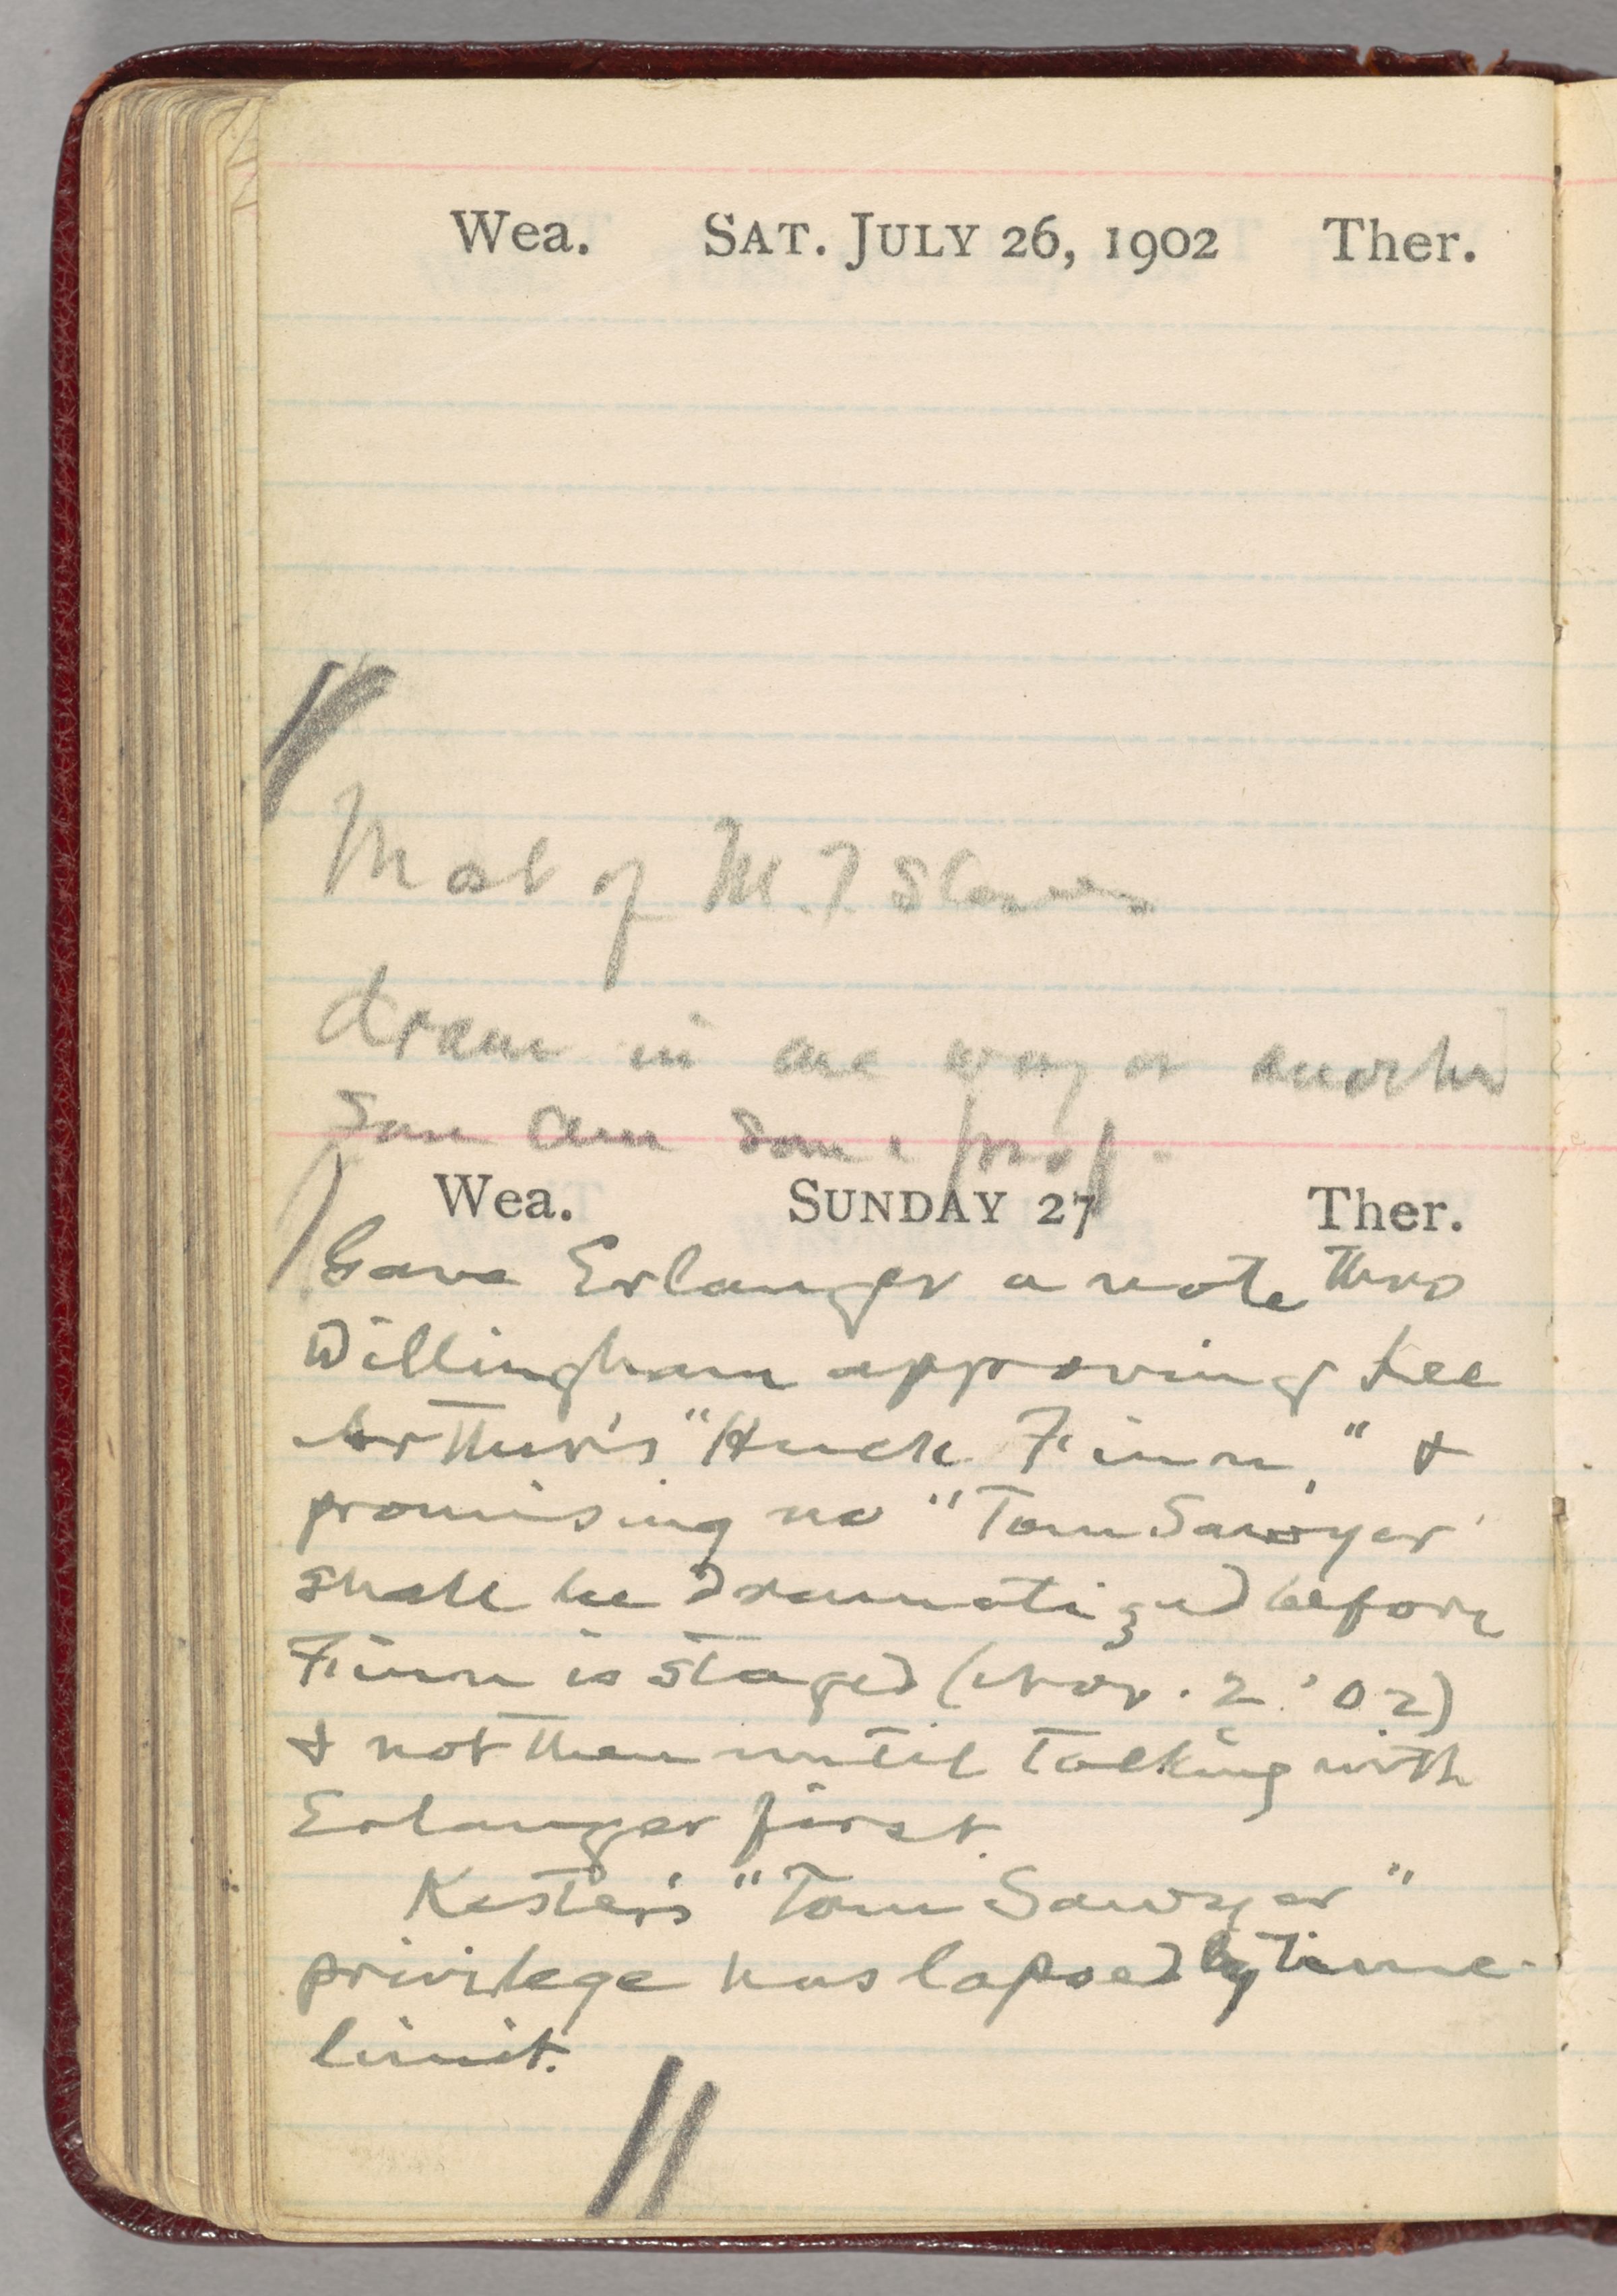 Wea. SAT. JULY 26, 1902 Ther.
Most of M.T
dram in one way or another
Some
Wea. SUNDAY 27 Ther.
Gave Erlanger a note thro
Willingham approving Lee
Arthur's "Huck Finn," &
promising no "Tom Sawyer'
shall be dramatized before
Finn is staged (Nov. 2 '02)
& not then until talking with
Erlanger first.
Kester's "Tom Sawyer"
privilege has lapsed by time-
limit.